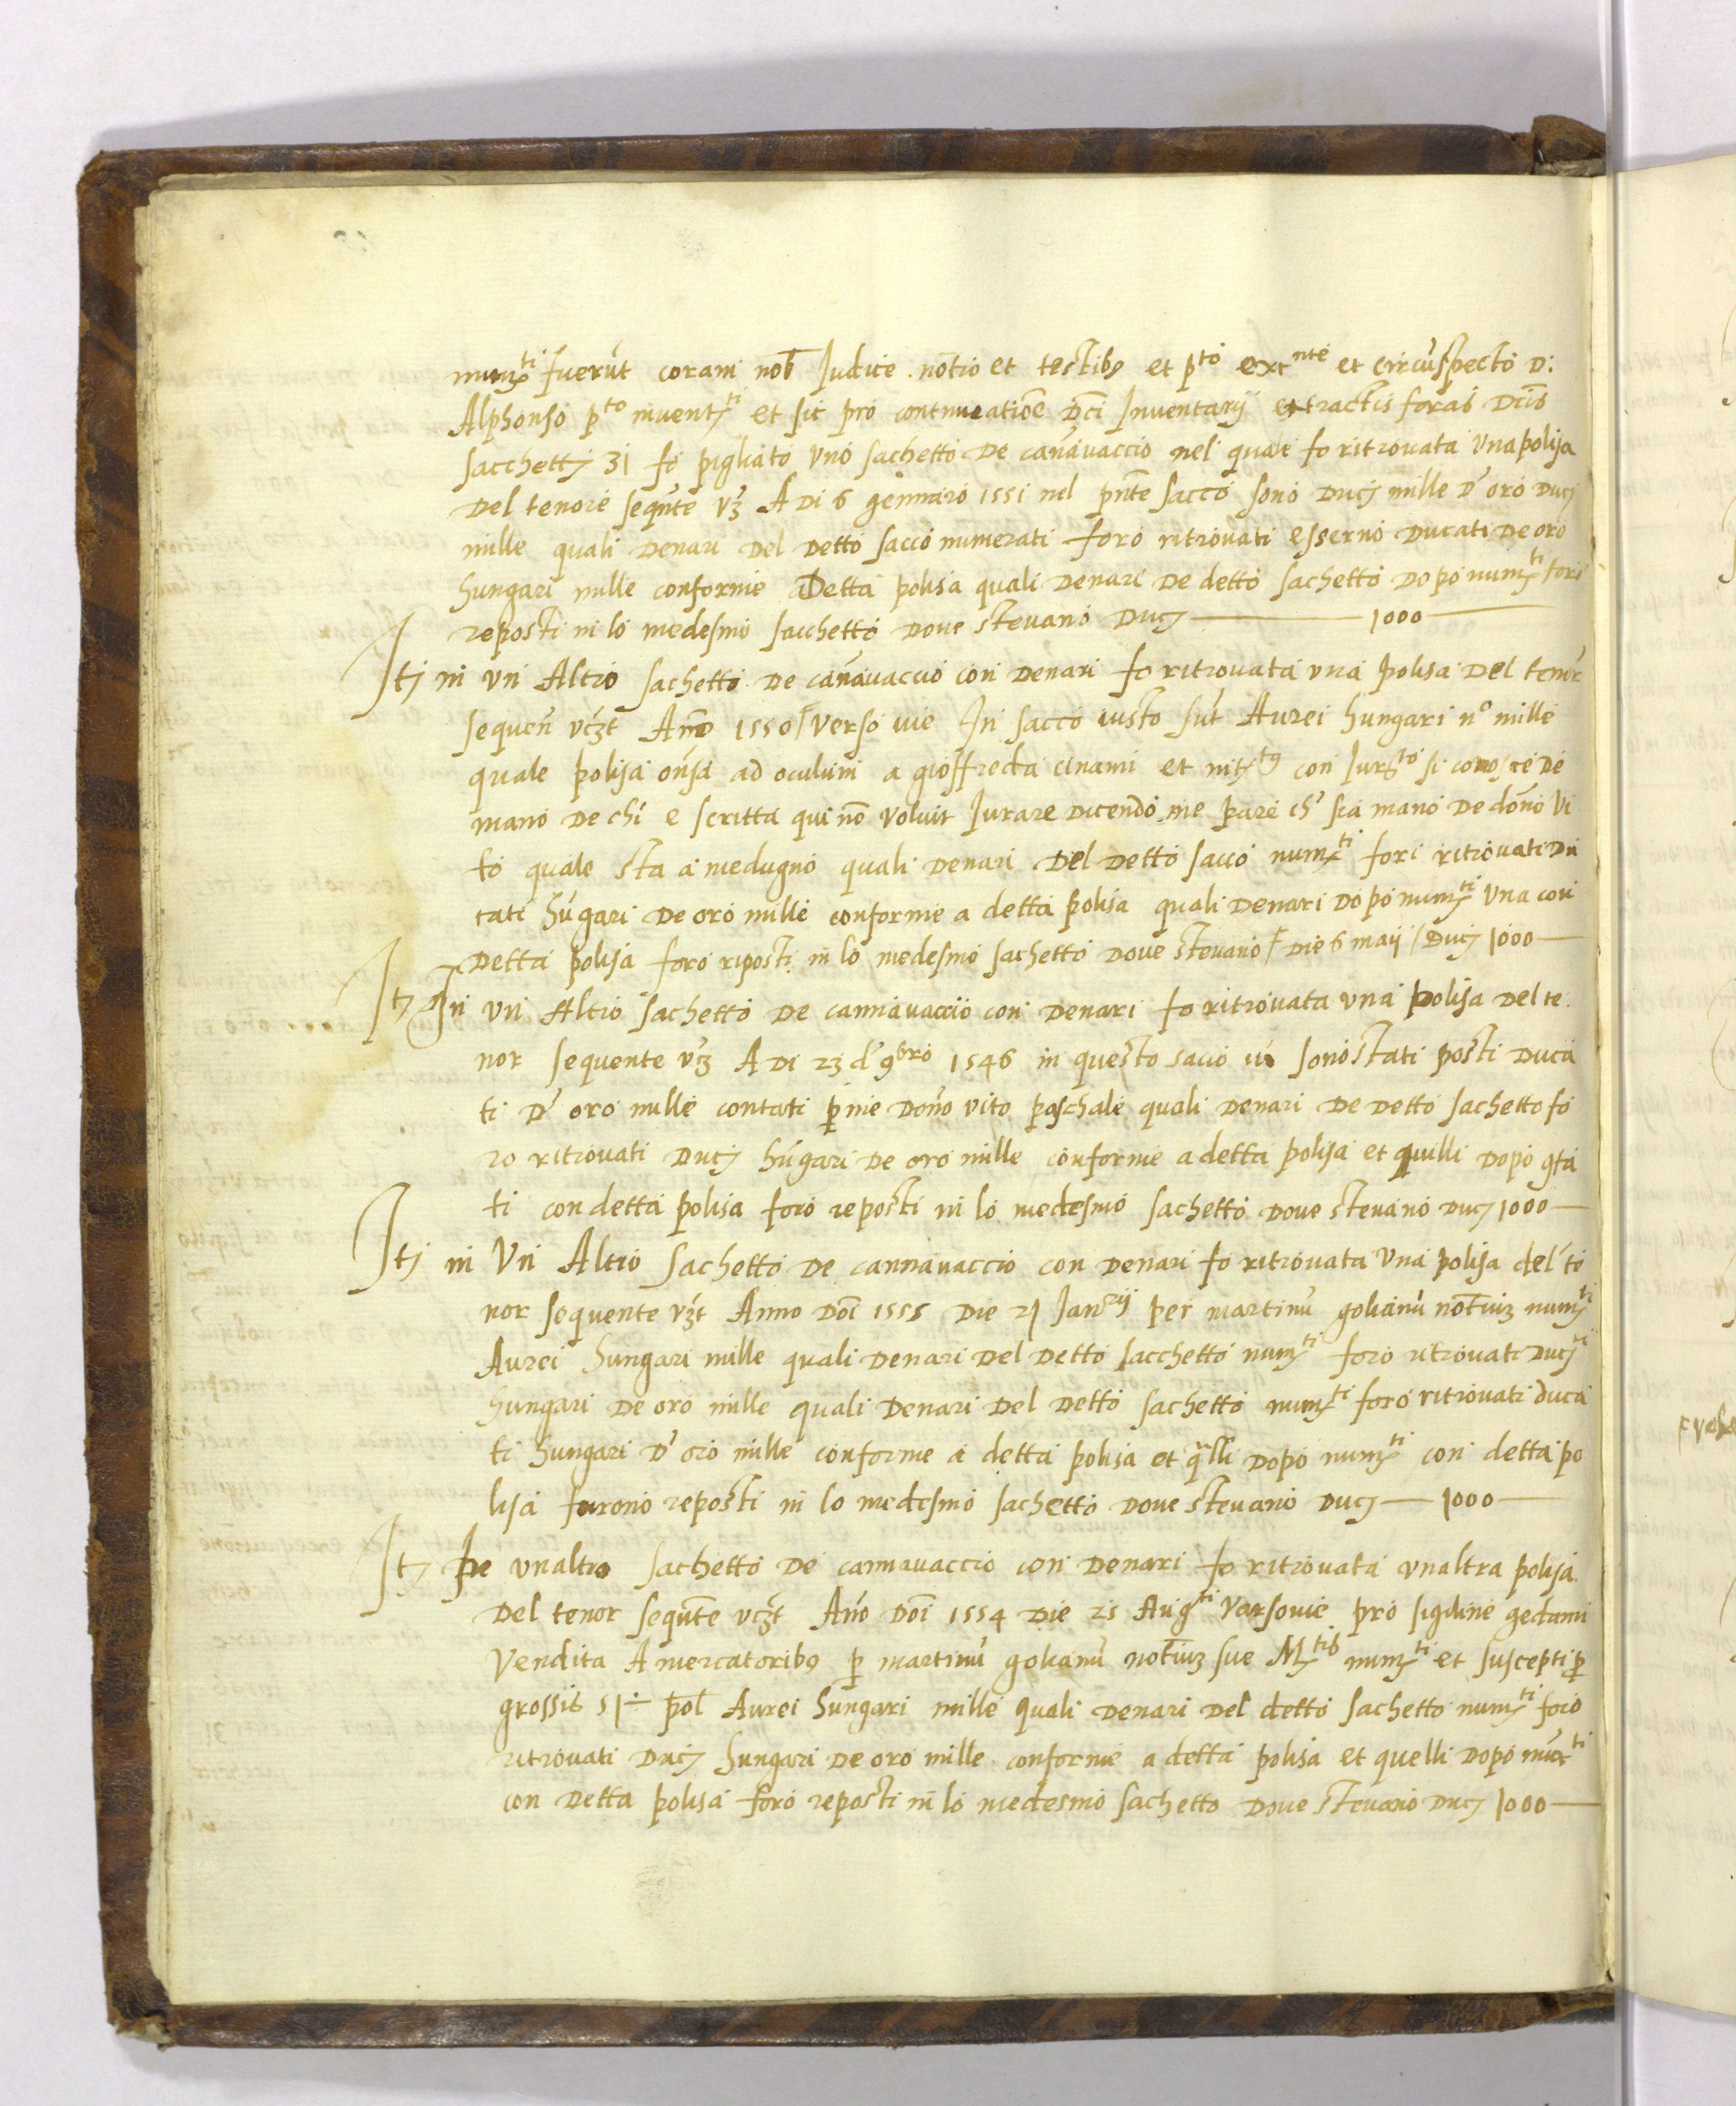 num.ti fuerūt coram nob Judice notio et testibꝰ et p.to ext.nte et circūspecto D:
Alphonso p.to invent.ti et sic pro continueatiōe dci Inventarij extractis foras Dcis
sacchettj 31 fo pigliato uno sachetto de canāvaccio nel quale fo ritrovata una polisa
Del tenore seqūte vz A Di 6 gennaro 1551 nel pnte sacco sono Ducj mille D' oro Ducj
mille quali Denari Del Detto sacco numerati foro ritrovati esserno Ducati De oro
hungari mille conforme a Detta polisa quali Denari De detto sachetto Dopo num.ti foro
reposti in lo medesmo sacchetto Dove stevano Ducj — 1000 —
Itj in un Altro sachetto De canāvaccio con Denari fo ritrovata una polisa Del tenor
sequen vczt Anno 1550 / Versovie In sacco iusto sūt Aurei hungari n° mille
quale polisa onsa ad oculum a gioffreda cinami et con Jur.to si conosce De
mano De chi e scritta qui nō voluit Jurare Dicendo me pare ch' sia mano De dōno Vi
to quale sta a medugno quali Denari Del Detto sacco num.ti fori ritrovati Du
cati hūgari De oro mille conforme a detta polisa quali Denari Dopo num.ti Una con
Detta polisa foro riposti in lo medesmo sachetto Dove stevano / Die 6 maij / Ducj 1000 —
Itj In un Altro sachetto De cannavaccio con Denari fo ritrovata una polisa Del te
nor sequente vz A Di 23 d' 9bro 1546 in questo sacco sono stati posti Duca
ti D' oro mille contati p me Dōno vito paschale quali Denari De Detto sachetto fo
ro ritrovati Ducj hūgari De oro mille conforme a detta polisa et quilli Dopo 9ta
ti con detta polisa foro reposti in lo medesmo sachetto Dove stevano Ducj 1000 —
Itj in Un Altro Sachetto De cannavaccio con Denari fo ritrovata Una polisa del te
nor sequente vzt Anno Doi 1555 Die 21 Janrij per martinū goliānū num.ti
Aurei hungari mille quali Denari Del Detto sacchetto num.ti foro ritrovati Ducj
hungari De oro mille quali Denari Del Detto sachetto num.ti foro ritrovati Duca
ti hungari D' oro mille conforme a detta polisa et qlli Dopo num.ti con detta po
lisa furono reposti in lo medesmo sachetto Dove stevano Ducj — 1000 —
Itj In unaltro sachetto De cannavaccio con Denari fo ritrovata unaltra polisa
Del tenor seqūte vczt Año Doi 1554 Die 25 Aug.ti Varsovie pro gedani
Vendita A mercatoribꝰ p martinū golianū sue M.tis num.ti et suscepti p
grossis 51 ÷ pol Aurei hungari mille quali Denari Del detto sachetto num.ti foro
ritrovati Ducj hungari De oro mille conforme a detta polisa et quelli Dopo num.ti
con Detta polisa foro reposti in lo medesmo sachetto Dove stevano Ducj 1000 —